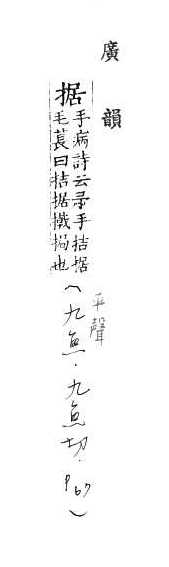 廣韻
据
手病詩云予手拮据
毛萇曰拮据撠挶也
(九魚.九魚切.P67)
平聲